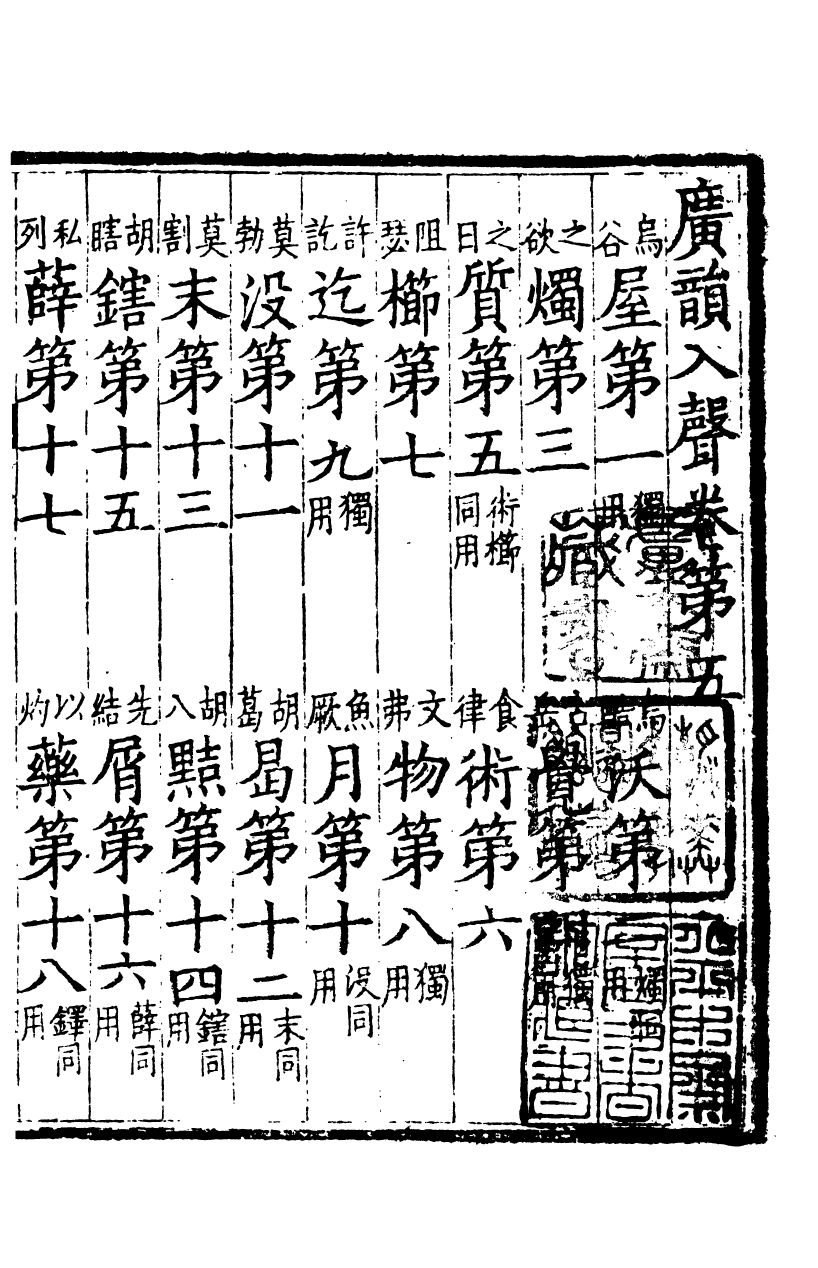 廣韻入聲卷第五
烏谷屋第一獨用 沃第
之欲燭第三 覺第
之日質第五術櫛同用 食律術第六
阻瑟櫛第七 文弗物第八獨用
許訖迄第九獨用 魚厥月第十没同用
莫勃没第十一 胡葛曷第十二末同用
莫割末第十三 胡八黠第十四鎋同用
胡瞎鎋第十五 先結屑第十六薛同用
私列薛第十七 以灼藥第十八鐸同用